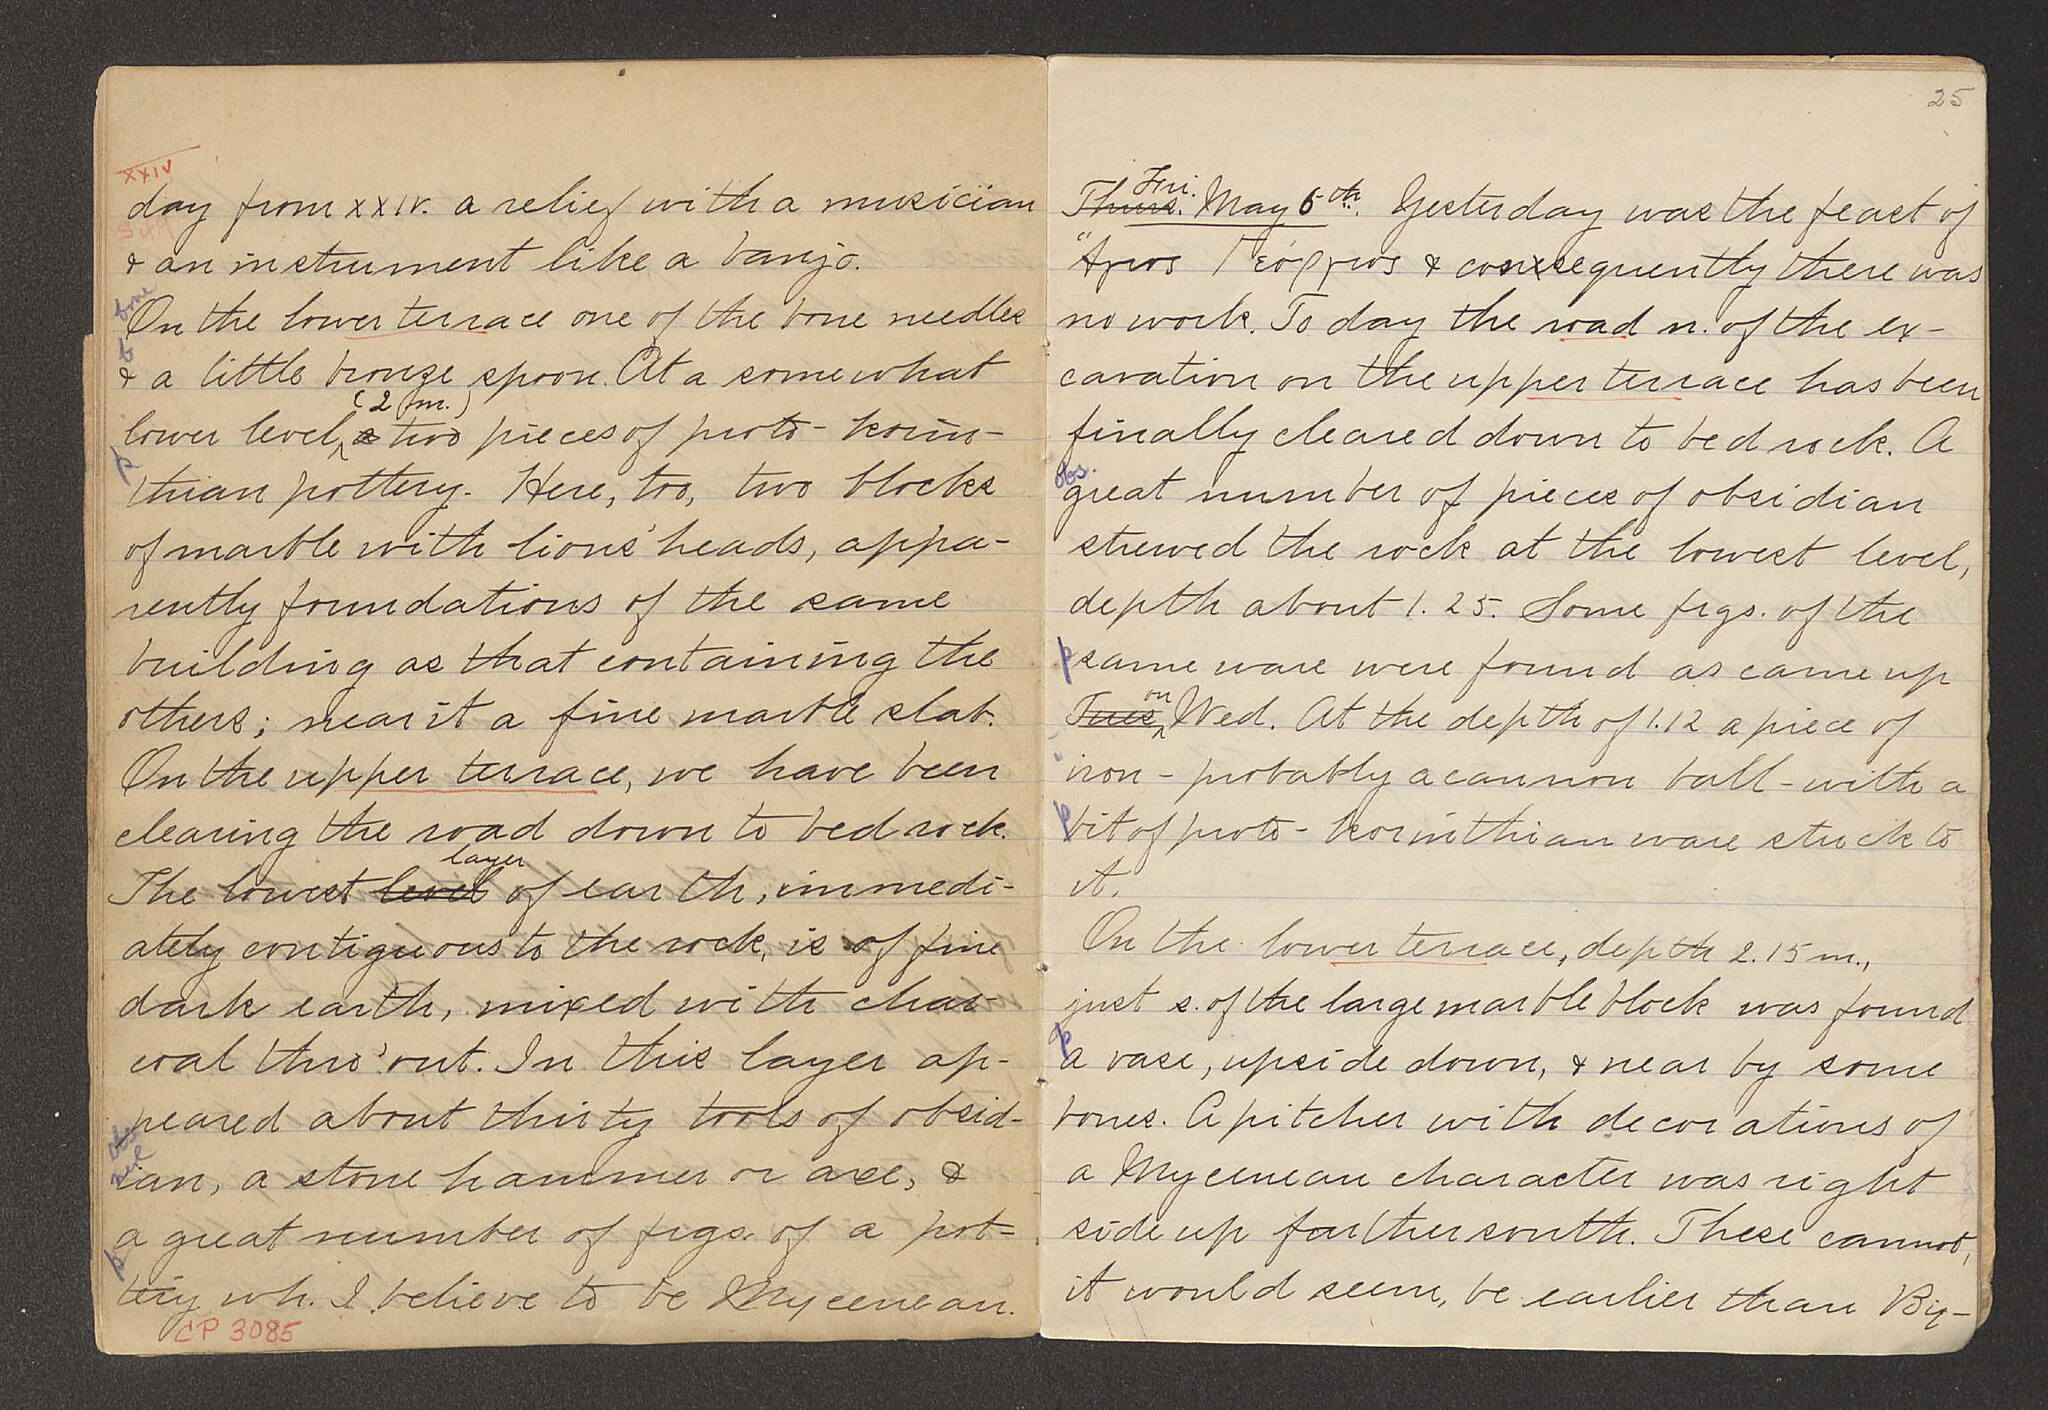 XXIV
day from XXIV. a relief with a musician
S 44
& an instrument like a banjo.
bone
On the lower terrace one of the bone needles
& a little bronze spoon. At a somewhat
(2 m.)
lower level two pieces of proto-korin-
p
thian pottery. Here, too, two blocks
of marble with lions' heads, appa-
rently foundations of the same
building as that containing the
others; near it a fine marble slab.
On the upper terrace, we have been
clearing the road down to bed rock.
layer
The lowest level of earth, immedi-
ately contiguous to the rock, is of fine
dark earth, mixed with char-
coal thro'out. In this layer ap-
peared about thirty tools of obsid-
ian, a stone hammer or axe, &
a great number of frgs. of a pot-
p
tery wh. I believe to be Myceenean.
CP 3085
25
Fri.
Thurs. May 6th. Yesterday was the feast of
Ἅγιος Γεόργιος & consequently there was
no work. To day the road n. of the ex-
cavation on the upper terrace has been
finally cleared down to bed rock. A
obs.
great number of pieces of obsidian
strewed the rock at the lowest level,
depth about 1.25. Some frgs. of the
p same ware were found as came up
on
Tues Wed. At the depth of 1.12 a piece of
iron - probably a cannon ball - with a
p bit of proto-korinthian ware stuck to
it.
On the lower terrace, depth 2.15 m.,
just s. of the large marble block was found
p
a vase, upside down, & near by some
bones. A pitcher with decorations of
a Myceenean character was right
side up farther south. These cannot,
it would seem, be earlier than Byz-